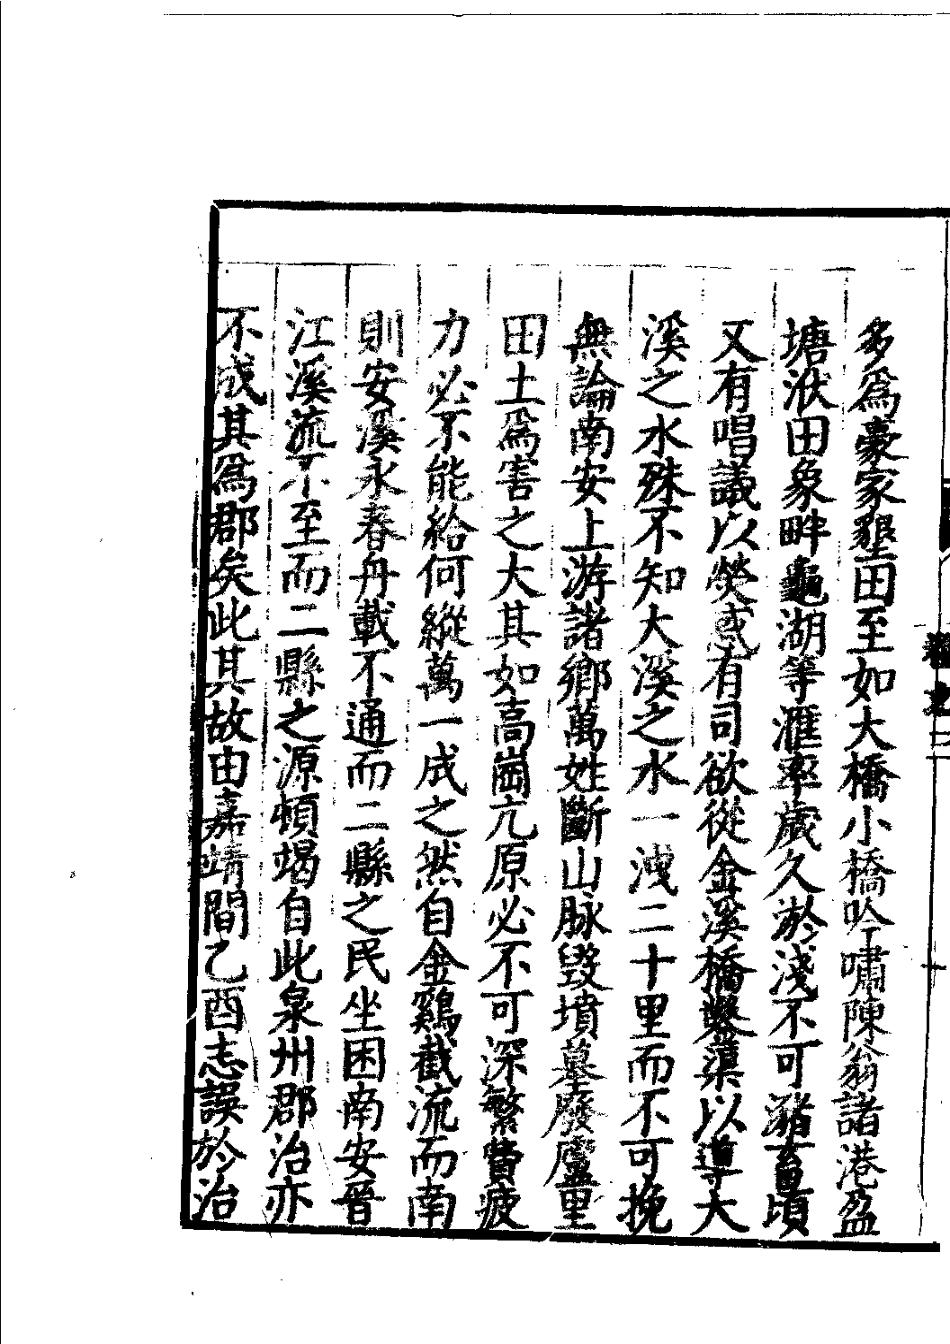 多爲豪家墾田至如大橋小橋吟嘯陳翁諸港盈
塘洑田象畔龜湖等滙率歲久淤淺不可瀦畜頃
又有唱議以熒惑有司欲從金溪橋鑿蕖以導大
溪之水殊不知大溪之水一洩二十里而不可挽
無論南安上游諸鄉萬姓斷山脉毀墳墓廢廬里
田土爲害之大其如高崗亢原必不可深繁費疲
力必不能給何縱萬一成之然自金鷄截流而南
則安溪永春舟載不通而二縣之民坐困南安晉
江溪流不至而二縣之源頓竭自此泉州郡治亦
不成其爲郡矣此其故由嘉靖間乙酉志誤於治